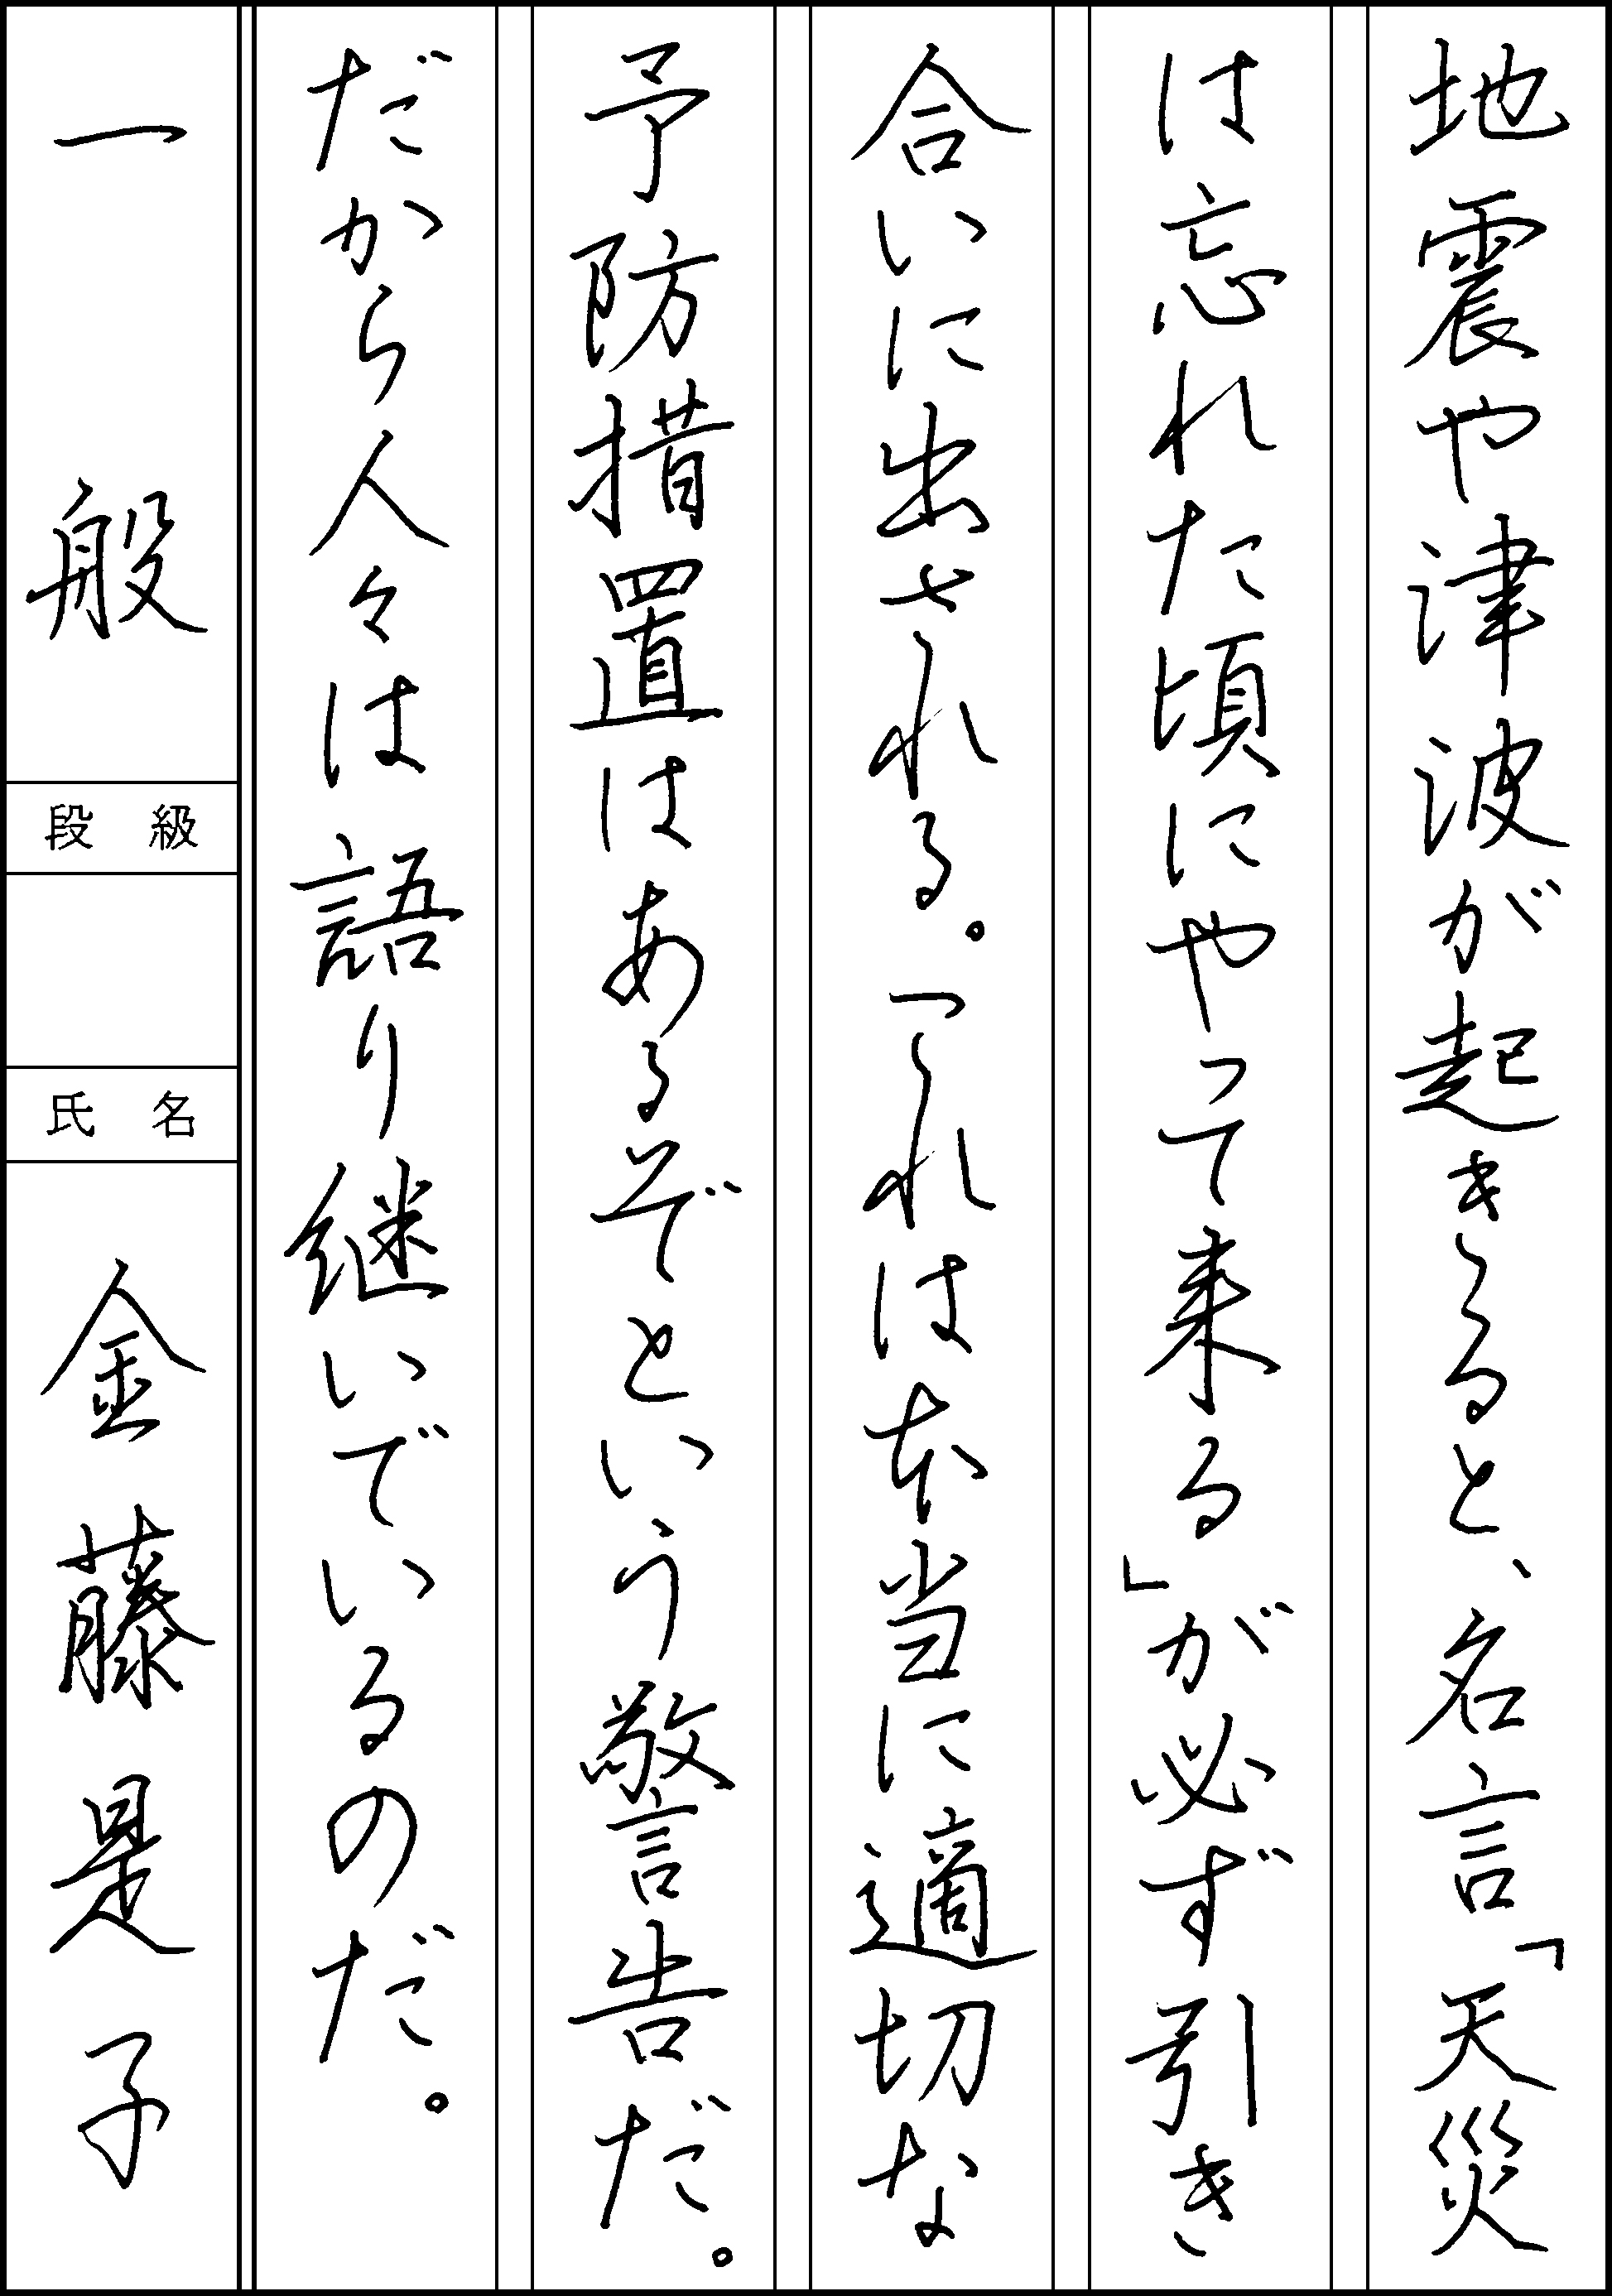 地震や津波が起きると、名言「天災
は忘れた頃にやって来る」が必ず引き
合いに出される。これは本当に適切な
予防措置はあるぞという警告だ。
だから人々は語り継いでいるのだ。
一般
段級
氏名
金藤是子